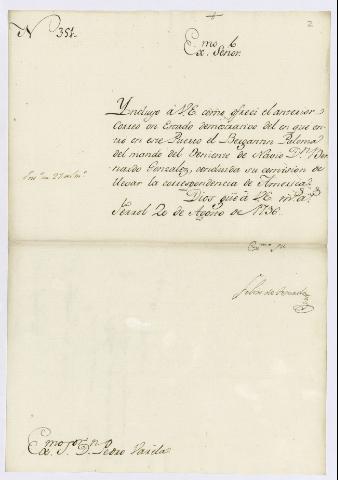 N.º 351.
2
Ex.mo Señor.
Yncluyo á V.E. como ofreci el anterior
Correo un Estado demostrativo del en que en-
tró en este Puerto el Bergantin Paloma
del mando del Teniente de Navio D.n Ber-
nardo Gonzalez, concluida su comision de
llevar la correspondencia de America.
Dios gũe á V.E. m.s a.s
Ferrol 20 de Agosto de 1796.
Ex.mo S.or
Felix de Texada
Ex.mo S.or D.n Pedro Varela